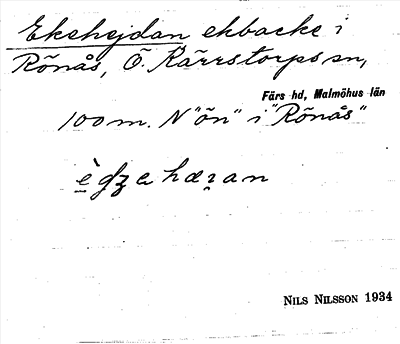 Ekehejdan ekbacke i
Rönås, Ö. Kärrstorps sn,
Färs hd, Malmöhus län
100 m. N "ön" i "Rönås"
Nils Nilsson 1934